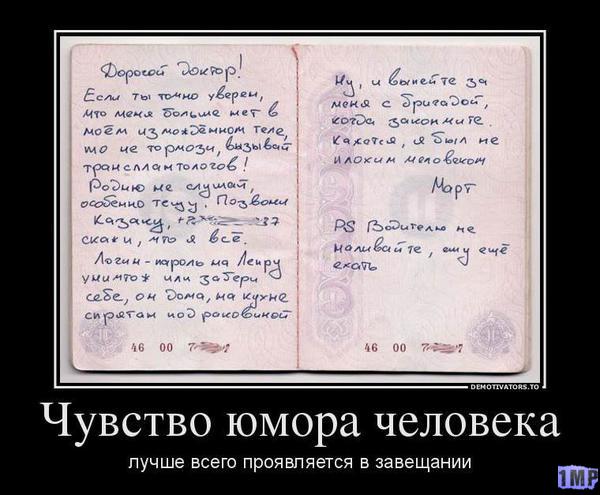 Дорогой доктор!
Если ты точно уверен,
что меня больше нет в
моём измождённом теле,
то не тормози, вызывай
трансплантологов!
Родню не слушай,
особенно тещу. Позвони
Казаку, +7 37
скажи, что я всё.
Логин-пароль на Лепру
уничтож или забери
себе, он дома, на кухне
спрятан под раковиной
46 00 7
Ну, и выпейте за
меня с бригадой,
когда закончите.
Кажется, я был не
плохим человеком
Март
PS Водителю не
наливайте, ему ещё
ехать
46 00 7
DEMOTIVATORS.TO
Чувство юмора человека
лучше всего проявляется в завещании
1MP